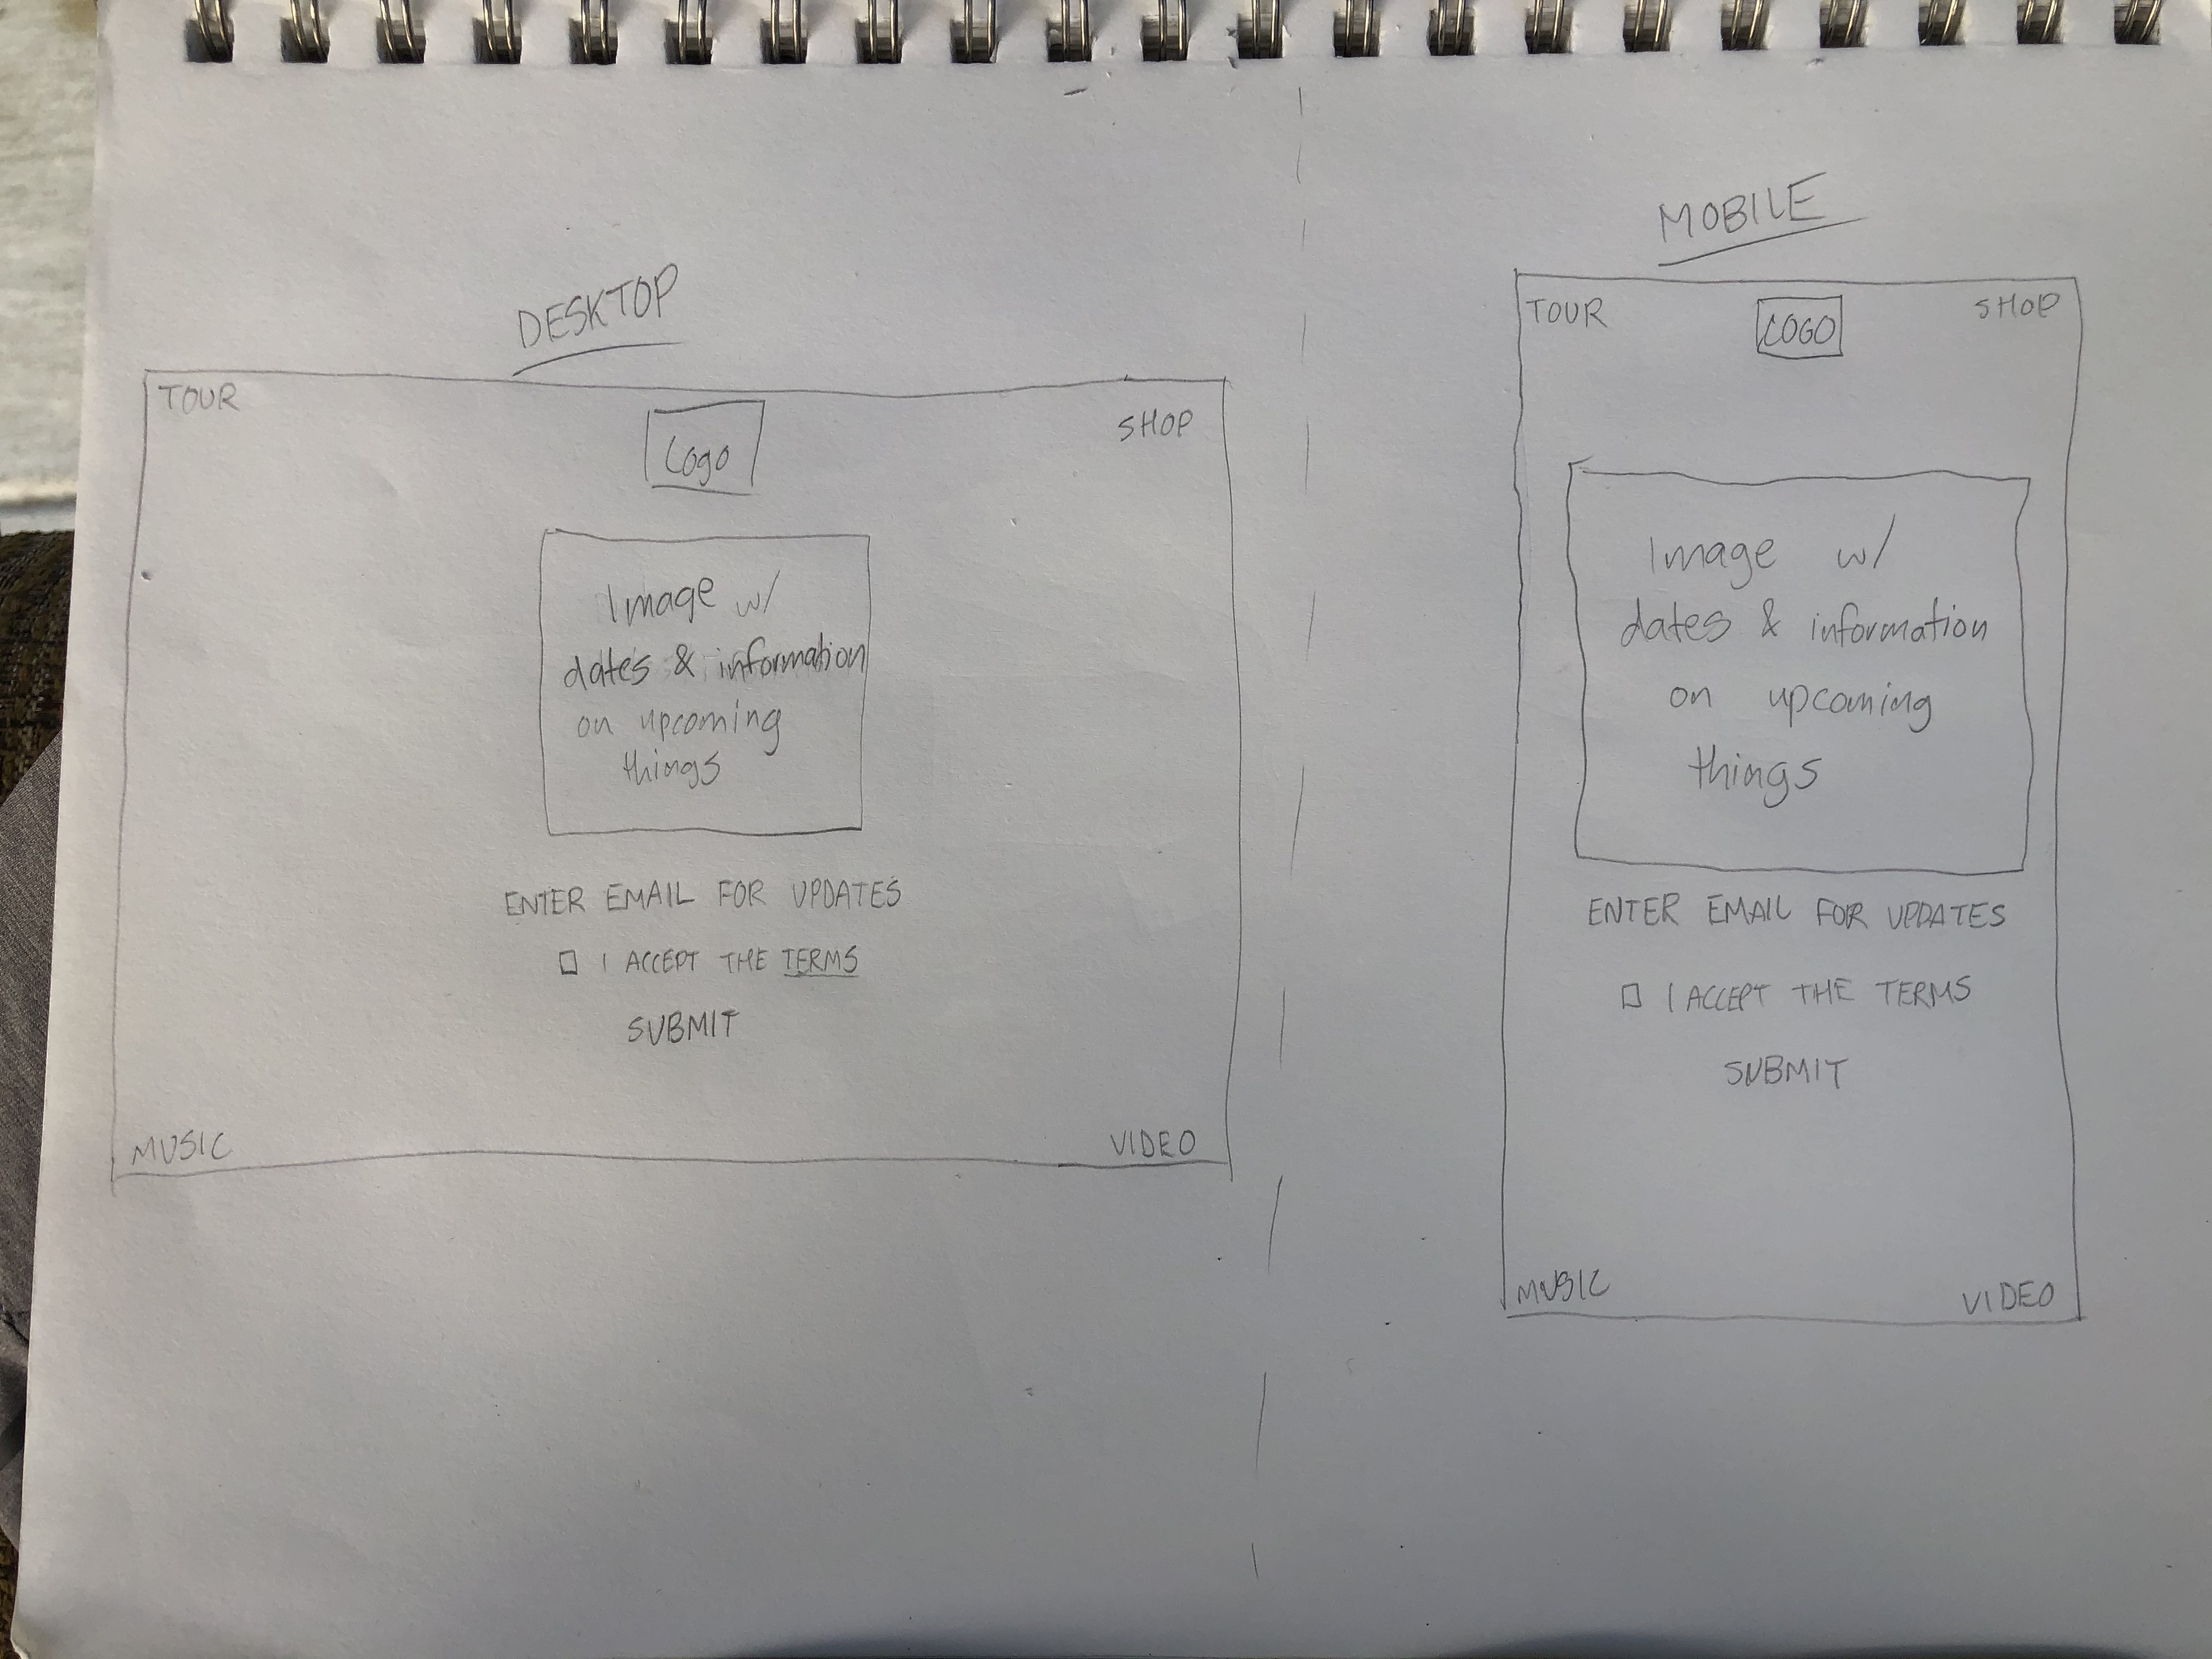 DESKTOP
TOUR
Logo
SHOP
Image w/
dates & information
on upcoming
things
ENTER EMAIL FOR UPDATES
I ACCEPT THE TERMS
SUBMIT
MUSIC
VIDEO
MOBILE
TOUR
LOGO
SHOP
Image w/
dates & information
on upcoming
things
ENTER EMAIL FOR UPDATES
I ACCEPT THE TERMS
SUBMIT
MUSIC
VIDEO